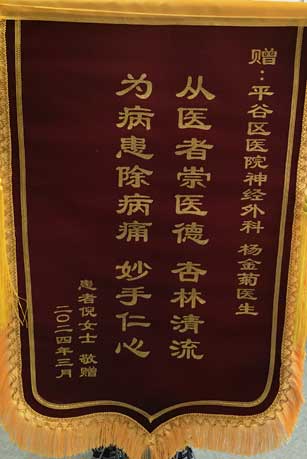 赠：平谷区医院神经外科 杨金菊医生
从医者崇医德 杏林清流
为病患除病痛 妙手仁心
患者倪女士 敬赠
二〇二四年三月